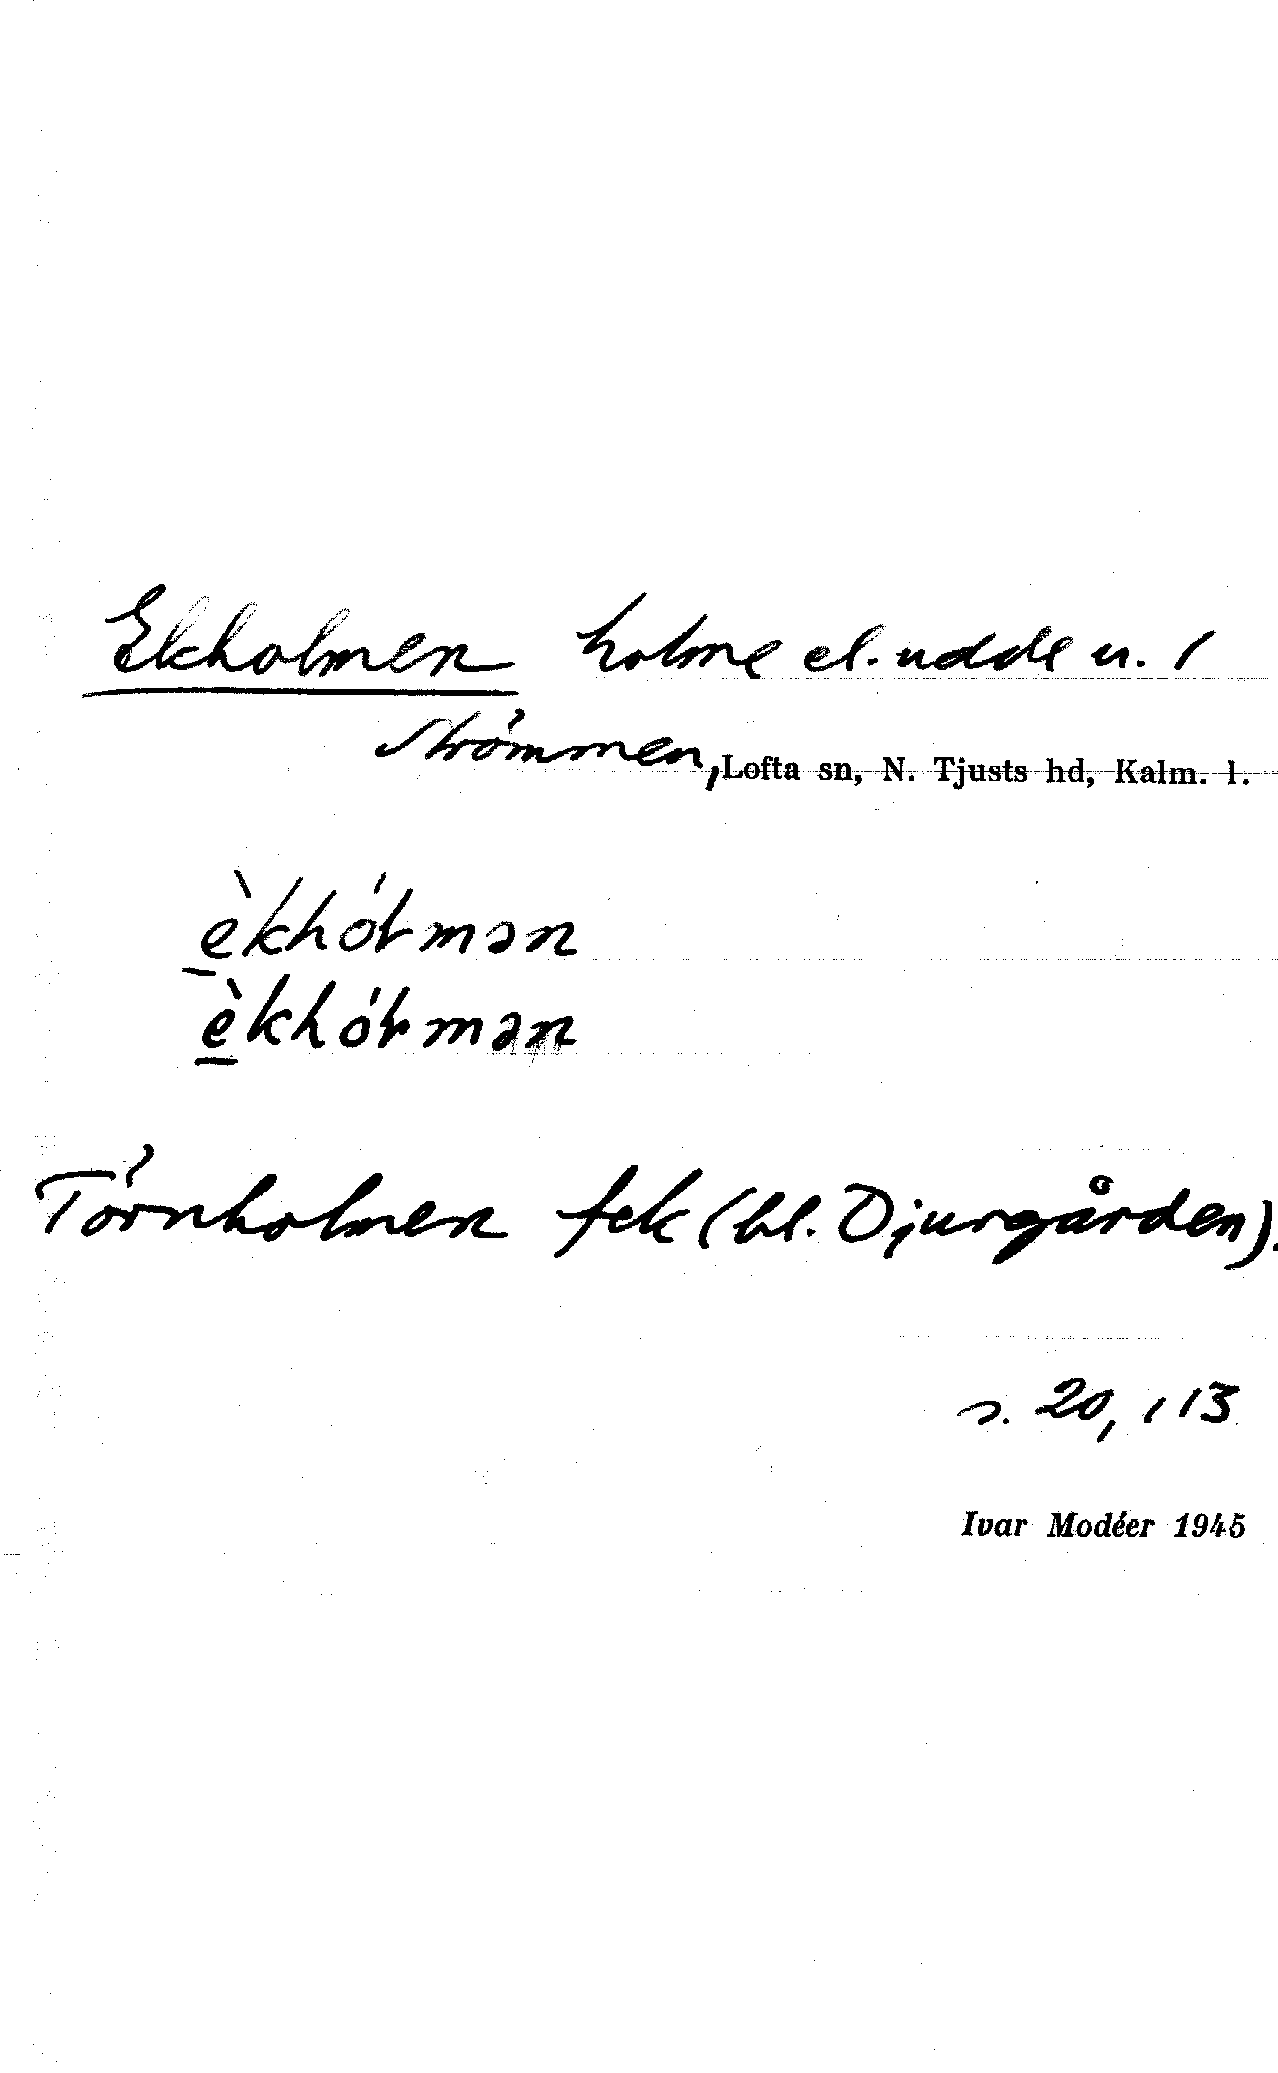 Ekholmen holme el. udde u. 1
Strömmen, Lofta sn, N. Tjusts hd, Kalm. l.
èkhóɫmən
èkhóɫmən
Törnholmen fek (bl. Djurgården).
s. 20, 113
Ivar Modéer 1945